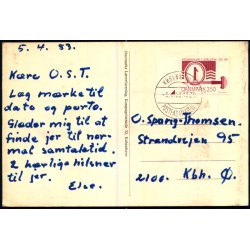 5. 4. 83.
Kære O.S.T.
Læg mærke til
dato og porto.
Glæder mig til at
finde jer til nor-
mal samtaletid.
2 kærlige hilsner
til jer.
Else.
DANMARK 250
O. Spang-Thomsen.
Strandvejen 95
2100. Kbh. Ø.